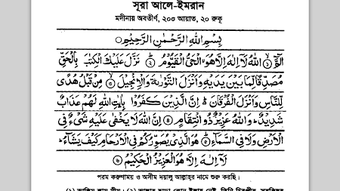 সূরা আলে-ইমরান
মদীনায় অবতীর্ণ, ২০০ আয়াত, ২০ রুকু
بِسْمِ اللّٰهِ الرَّحْمٰنِ الرَّحِيْمِ
الٓمّٓ ۝ اللّٰهُ لَآ اِلٰهَ اِلَّا هُوَ الْحَيُّ الْقَيُّوْمُ ۝ نَزَّلَ عَلَيْكَ الْكِتٰبَ بِالْحَقِّ
مُصَدِّقًا لِّمَا بَيْنَ يَدَيْهِ وَاَنْزَلَ التَّوْرٰىةَ وَالْاِنْجِيْلَ ۝ مِنْ قَبْلُ هُدًى
لِّلنَّاسِ وَاَنْزَلَ الْفُرْقَانَ ۝ اِنَّ الَّذِيْنَ كَفَرُوْا بِاٰيٰتِ اللّٰهِ لَهُمْ عَذَابٌ
شَدِيْدٌ ۝ وَاللّٰهُ عَزِيْزٌ ذُو انْتِقَامٍ ۝ اِنَّ اللّٰهَ لَا يَخْفٰى عَلَيْهِ شَيْءٌ فِى
الْاَرْضِ وَلَا فِى السَّمَآءِ ۝ هُوَ الَّذِيْ يُصَوِّرُكُمْ فِى الْاَرْحَامِ كَيْفَ يَشَآءُ
لَآ اِلٰهَ اِلَّا هُوَ الْعَزِيْزُ الْحَكِيْمُ ۝
পরম করুণাময় ও অসীম দয়ালু আল্লাহর নামে শুরু করছি।